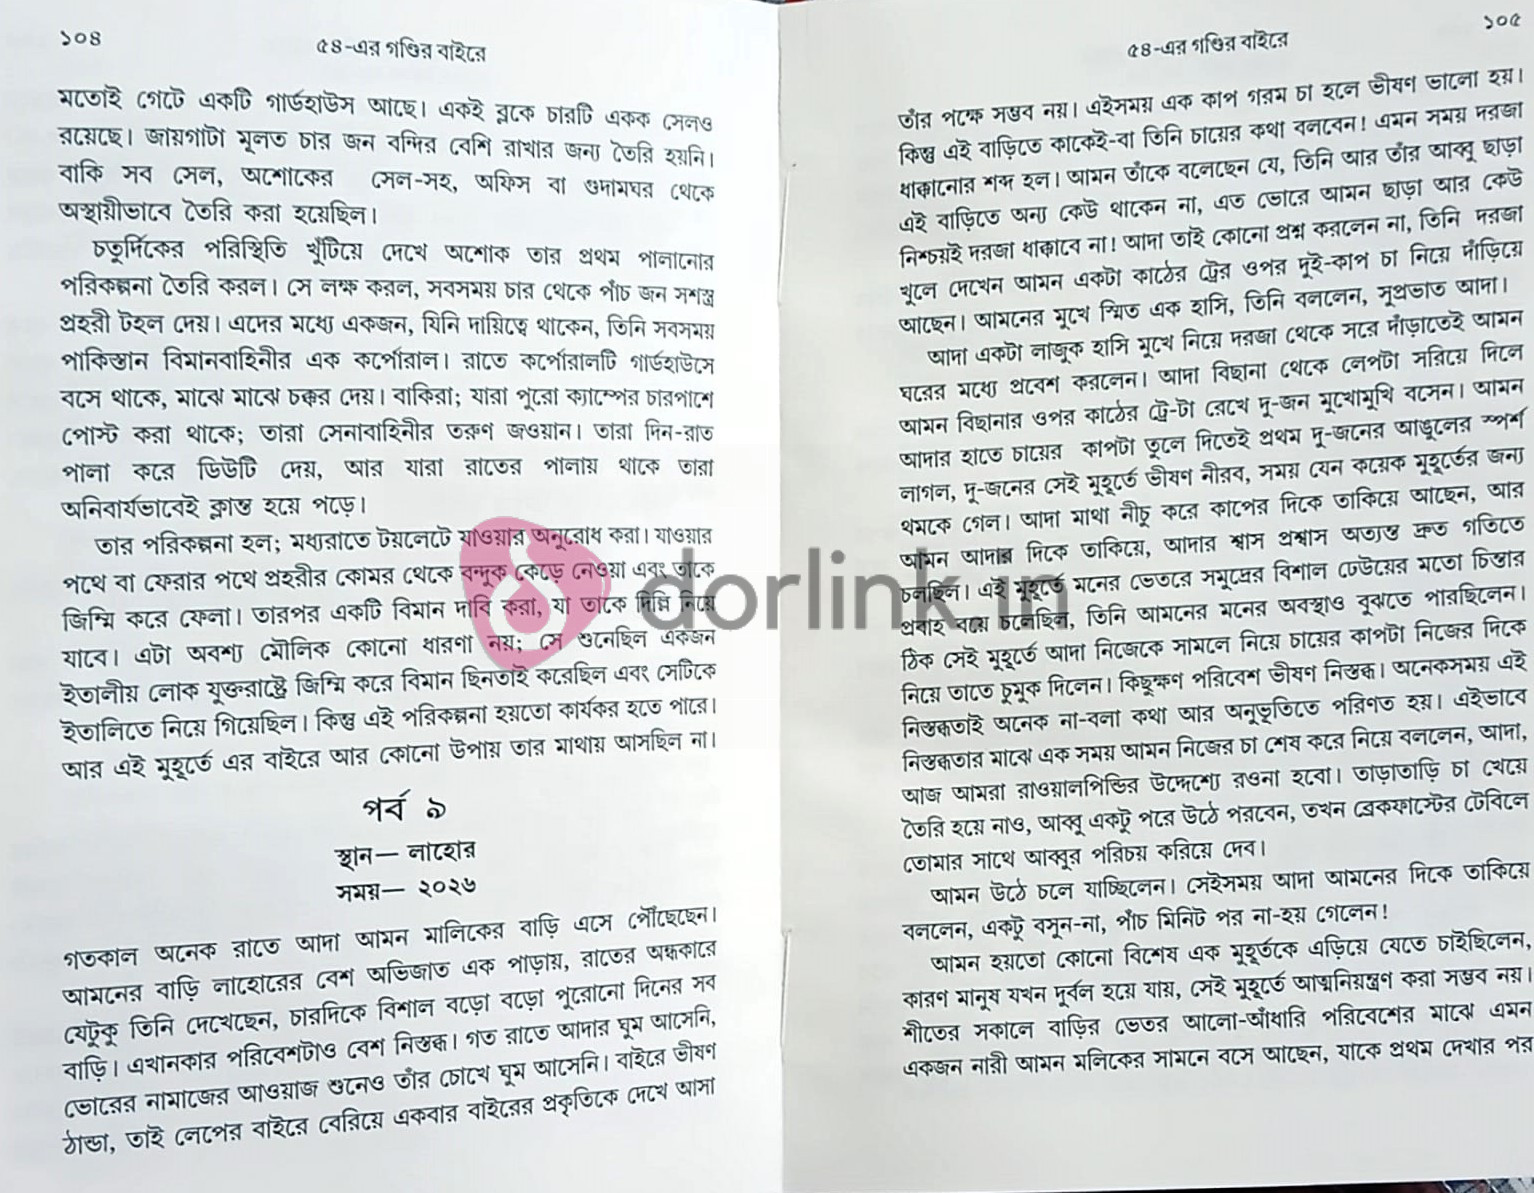 ১০৪
৫৪-এর গণ্ডির বাইরে
মতোই গেটে একটি গার্ডহাউস আছে। একই ব্লকে চারটি একক সেলও
রয়েছে। জায়গাটা মূলত চার জন বন্দির বেশি রাখার জন্য তৈরি হয়নি।
বাকি সব সেল, অশোকের সেল-সহ, অফিস বা গুদামঘর থেকে
অস্থায়ীভাবে তৈরি করা হয়েছিল।
চতুর্দিকের পরিস্থিতি খুঁটিয়ে দেখে অশোক তার প্রথম পালানোর
পরিকল্পনা তৈরি করল। সে লক্ষ করল, সবসময় চার থেকে পাঁচ জন সশস্ত্র
প্রহরী টহল দেয়। এদের মধ্যে একজন, যিনি দায়িত্বে থাকেন, তিনি সবসময়
পাকিস্তান বিমানবাহিনীর এক কর্পোরাল। রাতে কর্পোরালটি গার্ডহাউসে
বসে থাকে, মাঝে মাঝে চক্কর দেয়। বাকিরা; যারা পুরো ক্যাম্পের চারপাশে
পোস্ট করা থাকে; তারা সেনাবাহিনীর তরুণ জওয়ান। তারা দিন-রাত
পালা করে ডিউটি দেয়, আর যারা রাতের পালায় থাকে তারা
অনিবার্যভাবেই ক্লান্ত হয়ে পড়ে।
তার পরিকল্পনা হল; মধ্যরাতে টয়লেটে যাওয়ার অনুরোধ করা। যাওয়ার
পথে বা ফেরার পথে প্রহরীর কোমর থেকে বন্দুক কেড়ে নেওয়া এবং তাকে
জিম্মি করে ফেলা। তারপর একটি বিমান দাবি করা, যা তাকে দিল্লি নিয়ে
যাবে। এটা অবশ্য মৌলিক কোনো ধারণা নয়; সে শুনেছিল একজন
ইতালীয় লোক যুক্তরাষ্ট্রে জিম্মি করে বিমান ছিনতাই করেছিল এবং সেটিকে
ইতালিতে নিয়ে গিয়েছিল। কিন্তু এই পরিকল্পনা হয়তো কার্যকর হতে পারে।
আর এই মুহূর্তে এর বাইরে আর কোনো উপায় তার মাথায় আসছিল না।
পর্ব ৯
স্থান— লাহোর
সময়— ২০২৬
গতকাল অনেক রাতে আদা আমন মালিকের বাড়ি এসে পৌঁছেছেন।
আমনের বাড়ি লাহোরের বেশ অভিজাত এক পাড়ায়, রাতের অন্ধকারে
যেটুকু তিনি দেখেছেন, চারদিকে বিশাল বড়ো বড়ো পুরোনো দিনের সব
বাড়ি। এখানকার পরিবেশটাও বেশ নিস্তব্ধ। গত রাতে আদার ঘুম আসেনি,
ভোরের নামাজের আওয়াজ শুনেও তাঁর চোখে ঘুম আসেনি। বাইরে ভীষণ
ঠান্ডা, তাই লেপের বাইরে বেরিয়ে একবার বাইরের প্রকৃতিকে দেখে আসা
১০৫
৫৪-এর গণ্ডির বাইরে
তাঁর পক্ষে সম্ভব নয়। এইসময় এক কাপ গরম চা হলে ভীষণ ভালো হয়।
কিন্তু এই বাড়িতে কাকেই-বা তিনি চায়ের কথা বলবেন! এমন সময় দরজা
ধাক্কানোর শব্দ হল। আমন তাঁকে বলেছেন যে, তিনি আর তাঁর আব্বু ছাড়া
এই বাড়িতে অন্য কেউ থাকেন না, এত ভোরে আমন ছাড়া আর কেউ
নিশ্চয়ই দরজা ধাক্কাবে না! আদা তাই কোনো প্রশ্ন করলেন না, তিনি দরজা
খুলে দেখেন আমন একটা কাঠের ট্রের ওপর দুই-কাপ চা নিয়ে দাঁড়িয়ে
আছেন। আমনের মুখে স্মিত এক হাসি, তিনি বললেন, সুপ্রভাত আদা।
আদা একটা লাজুক হাসি মুখে নিয়ে দরজা থেকে সরে দাঁড়াতেই আমন
ঘরের মধ্যে প্রবেশ করলেন। আদা বিছানা থেকে লেপটা সরিয়ে দিলে
আমন বিছানার ওপর কাঠের ট্রে-টা রেখে দু-জন মুখোমুখি বসেন। আমন
আদার হাতে চায়ের কাপটা তুলে দিতেই প্রথম দু-জনের আঙুলের স্পর্শ
লাগল, দু-জনের সেই মুহূর্তে ভীষণ নীরব, সময় যেন কয়েক মুহূর্তের জন্য
থমকে গেল। আদা মাথা নীচু করে কাপের দিকে তাকিয়ে আছেন, আর
আমন আদার দিকে তাকিয়ে, আদার শ্বাস প্রশ্বাস অত্যন্ত দ্রুত গতিতে
চলছিল। এই মুহূর্তে মনের ভেতরে সমুদ্রের বিশাল ঢেউয়ের মতো চিন্তার
প্রবাহ বয়ে চলেছিল, তিনি আমনের মনের অবস্থাও বুঝতে পারছিলেন।
ঠিক সেই মুহূর্তে আদা নিজেকে সামলে নিয়ে চায়ের কাপটা নিজের দিকে
নিয়ে তাতে চুমুক দিলেন। কিছুক্ষণ পরিবেশ ভীষণ নিস্তব্ধ। অনেকসময় এই
নিস্তব্ধতাই অনেক না-বলা কথা আর অনুভূতিতে পরিণত হয়। এইভাবে
নিস্তব্ধতার মাঝে এক সময় আমন নিজের চা শেষ করে নিয়ে বললেন, আদা,
আজ আমরা রাওয়ালপিন্ডির উদ্দেশ্যে রওনা হবো। তাড়াতাড়ি চা খেয়ে
তৈরি হয়ে নাও, আব্বু একটু পরে উঠে পরবেন, তখন ব্রেকফাস্টের টেবিলে
তোমার সাথে আব্বুর পরিচয় করিয়ে দেব।
আমন উঠে চলে যাচ্ছিলেন। সেইসময় আদা আমনের দিকে তাকিয়ে
বললেন, একটু বসুন-না, পাঁচ মিনিট পর না-হয় গেলেন!
আমন হয়তো কোনো বিশেষ এক মুহূর্তকে এড়িয়ে যেতে চাইছিলেন,
কারণ মানুষ যখন দুর্বল হয়ে যায়, সেই মুহূর্তে আত্মনিয়ন্ত্রণ করা সম্ভব নয়।
শীতের সকালে বাড়ির ভেতর আলো-আঁধারি পরিবেশের মাঝে এমন
একজন নারী আমন মলিকের সামনে বসে আছেন, যাকে প্রথম দেখার পর
dorlink.in